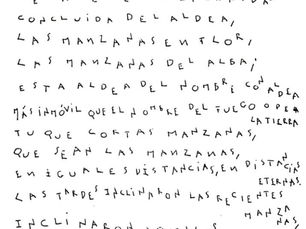 CONCLUIDA DEL ALDEA,
LAS MANZANAS EN FLOR,
LAS MANZANAS DEL ALBA;
ESTA ALDEA DEL NOMBRE CON ALDEA
MÁS INMÓVIL QUE EL NOMBRE DEL FUEGO O DE LA TIERRA
TU QUE CORTAS MANZANAS,
QUE SEAN LAS MANZANAS,
EN IGUALES DISTANCIAS, EN DISTANCIAS ETERNAS.
LAS TARDES INCLINARON LAS RECIENTES MANZANAS,
INCLINARON